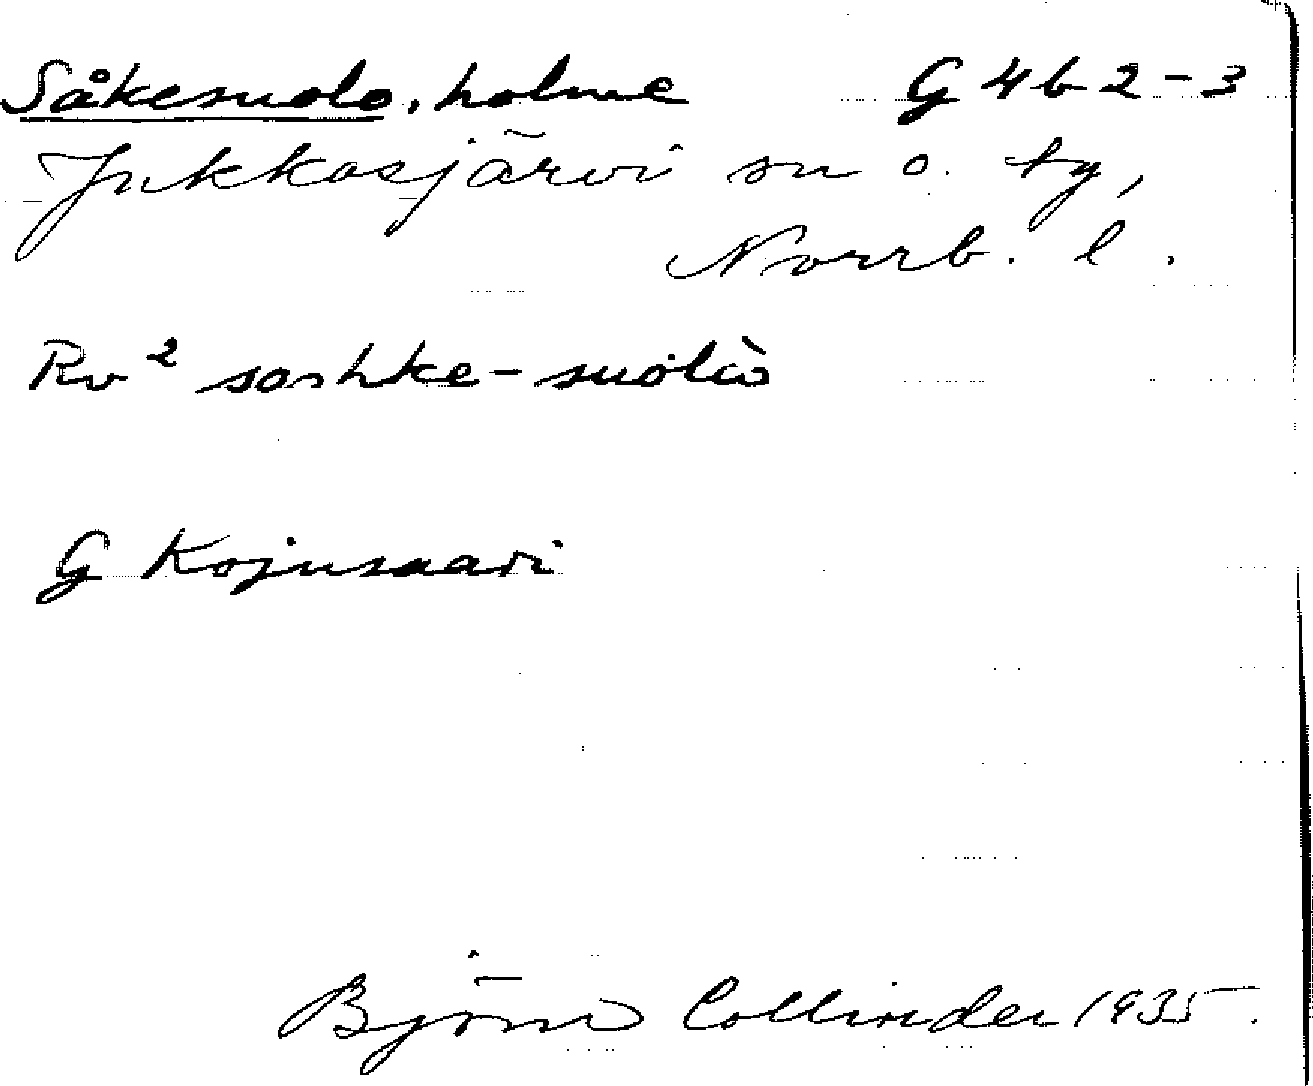 Såkesuolo, holme G 4 b 2-3
Jukkasjärvi sn o. tg,
Norrb. l.
Rv² soshke-suolò
G Kojusaari
Björn Collinder 1935.